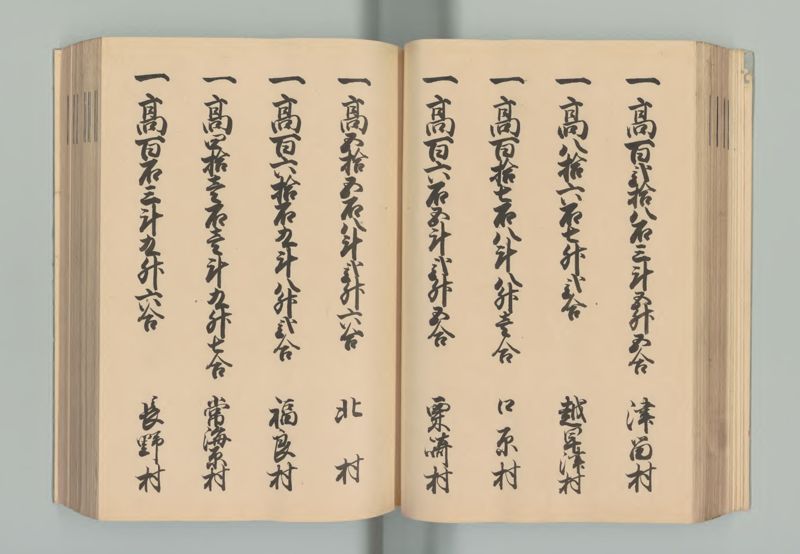 一高百弐拾八石三斗五升五合 津留村
一高八拾六石七升弐合 越早津村
一高百拾七石八斗八升壱合 口原村
一高百六石五斗弐升五合 栗崎村
一高五拾五石八斗弐升六合 北村
一高百六拾石九斗八升弐合 福良村
一高四拾壱石壱斗九升七合 常海原村
一高百石三斗九升六合 長野村